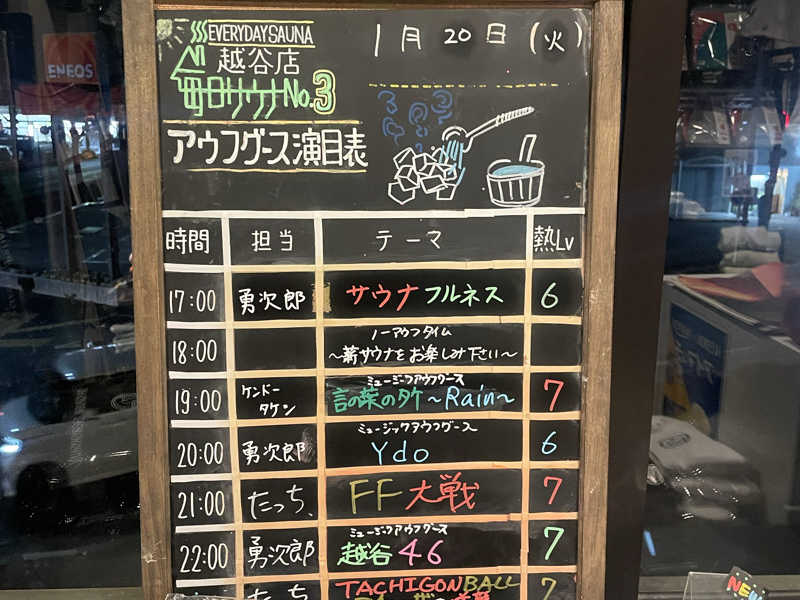 ENEOS
EVERYDAY SAUNA
越谷店
毎日サウナNo.3
1月20日(火)
アウフグース演目表
時間 担当 テーマ 熱Lv
17:00 勇次郎 サウナフルネス 6
18:00 ノーアウフタイム
～薪サウナをお楽しみ下さい～
19:00 ケンドータケン ミュージックアウフグース
言の葉のタケ～Rain～ 7
20:00 勇次郎 ミュージックアウフグース
Ydo 6
21:00 たっち、 FF大戦 7
22:00 勇次郎 ミュージックアウフグース
越谷46 7
たっち TACHIGONBALL 7
NEW